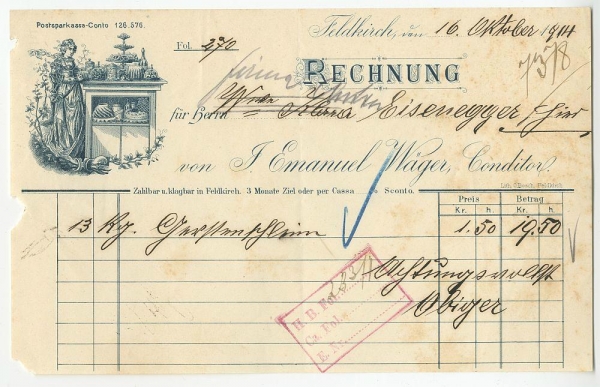 Postsparkassa-Conto 126.576.
Feldkirch, den 16. Oktober 1914
Fol. 270
RECHNUNG
Firma
für Herrn Eisenegger, hier
von J. Emanuel Wäger, Conditor.
Zahlbar u. klagbar in Feldkirch. 3 Monate Ziel oder per Cassa % Sconto.
Preis Betrag
Kr. h. Kr. h.
13 Kg. Gerstenschleim 1.50 19.50
Achtungsvollst
Obiger
H. B. Fol.
Ca. Fol.